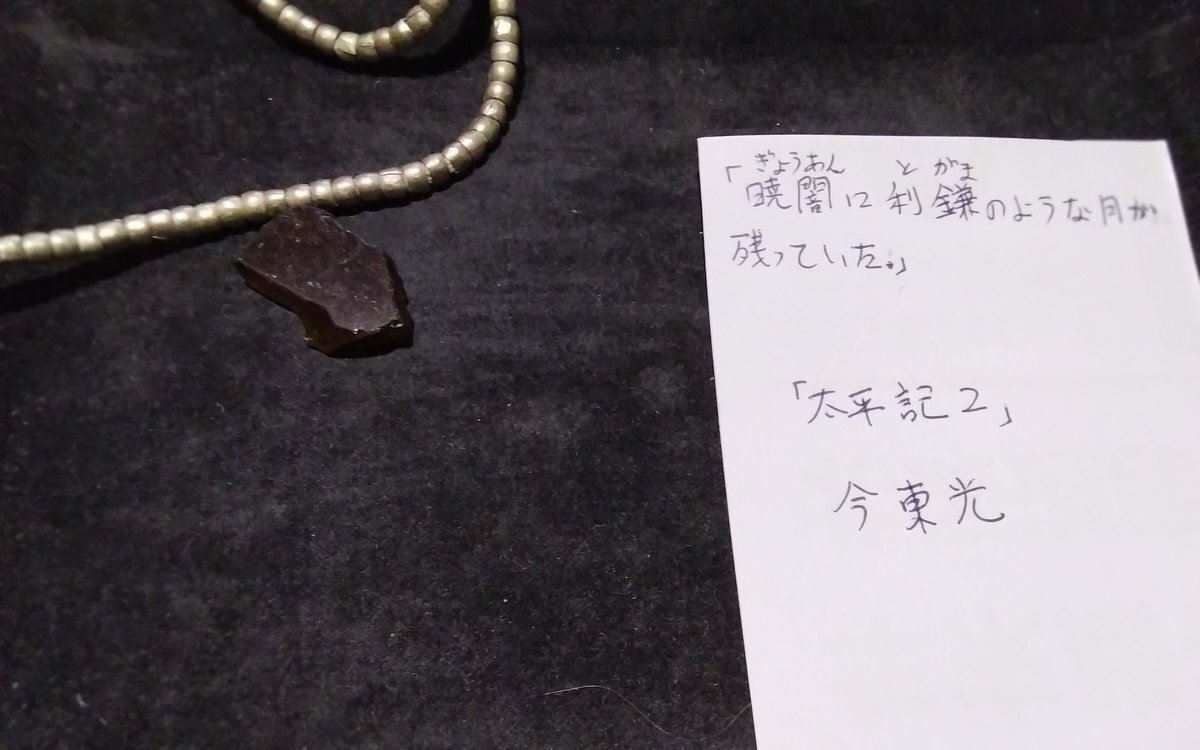 ぎょうあん とがま
「暁闇に利鎌のような月が
残っていた。」
「太平記2」
今東光